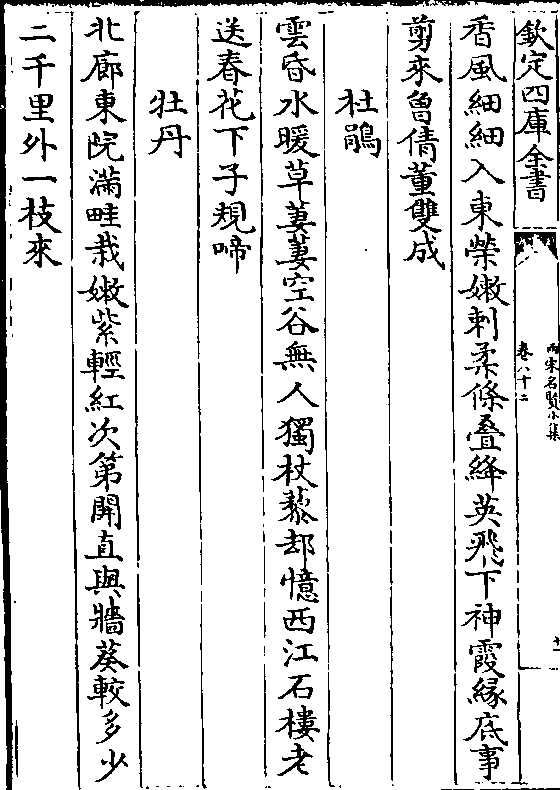 欽定四庫全書
兩宋名賢小集
卷八十二
十一
香風細細入東榮嫩刺柔條叠絳英飛下神霞緣底事
剪來魯倩董雙成
杜鵑
雲昏水暖草萋萋空谷無人獨杖藜却憶西江石樓老
送春花下子規啼
牡丹
北廊東院滿畦栽嫩紫輕紅次第開直與牆葵較多少
二千里外一枝來